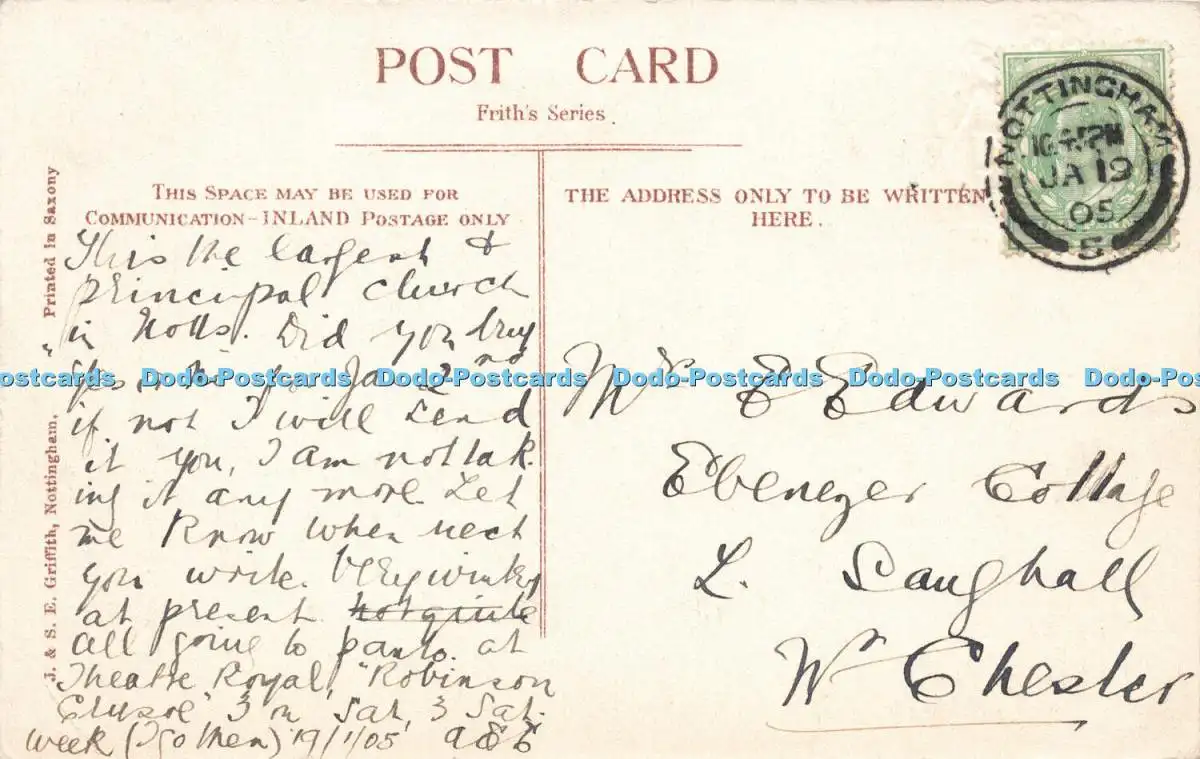 POST CARD
Frith's Series.
THIS SPACE MAY BE USED FOR
COMMUNICATION-INLAND POSTAGE ONLY
This the largest &
principal church
in Notts. Did you buy
to Jan 2nd
if not I will send
it you, I am not tak-
ing it any more Let
me know when next
you write. Very wintry
at present not quite
all going to panto. at
Theatre Royal, "Robinson
Crusoe" 3 on Sat, 3 Sat.
week (I go then) 19/1/05 A E E
THE ADDRESS ONLY TO BE WRITTEN
HERE.
NOTTINGHAM
JA 19
05
5
Mr E Edwards
Ebenezer Cottage
L. Saughall
Nr Chester
J. & S. E. Griffith, Nottingham.
Printed in Saxony
Dodo-Postcards Dodo-Postcards Dodo-Postcards Dodo-Postcards Dodo-Postcards